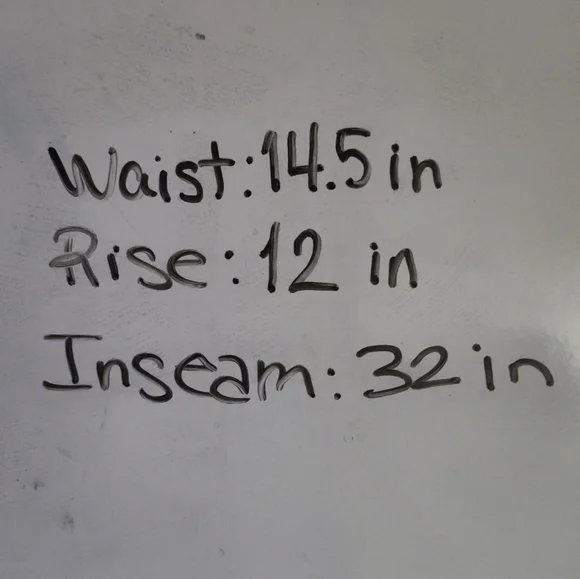 Waist: 14.5 in
Rise: 12 in
Inseam: 32 in